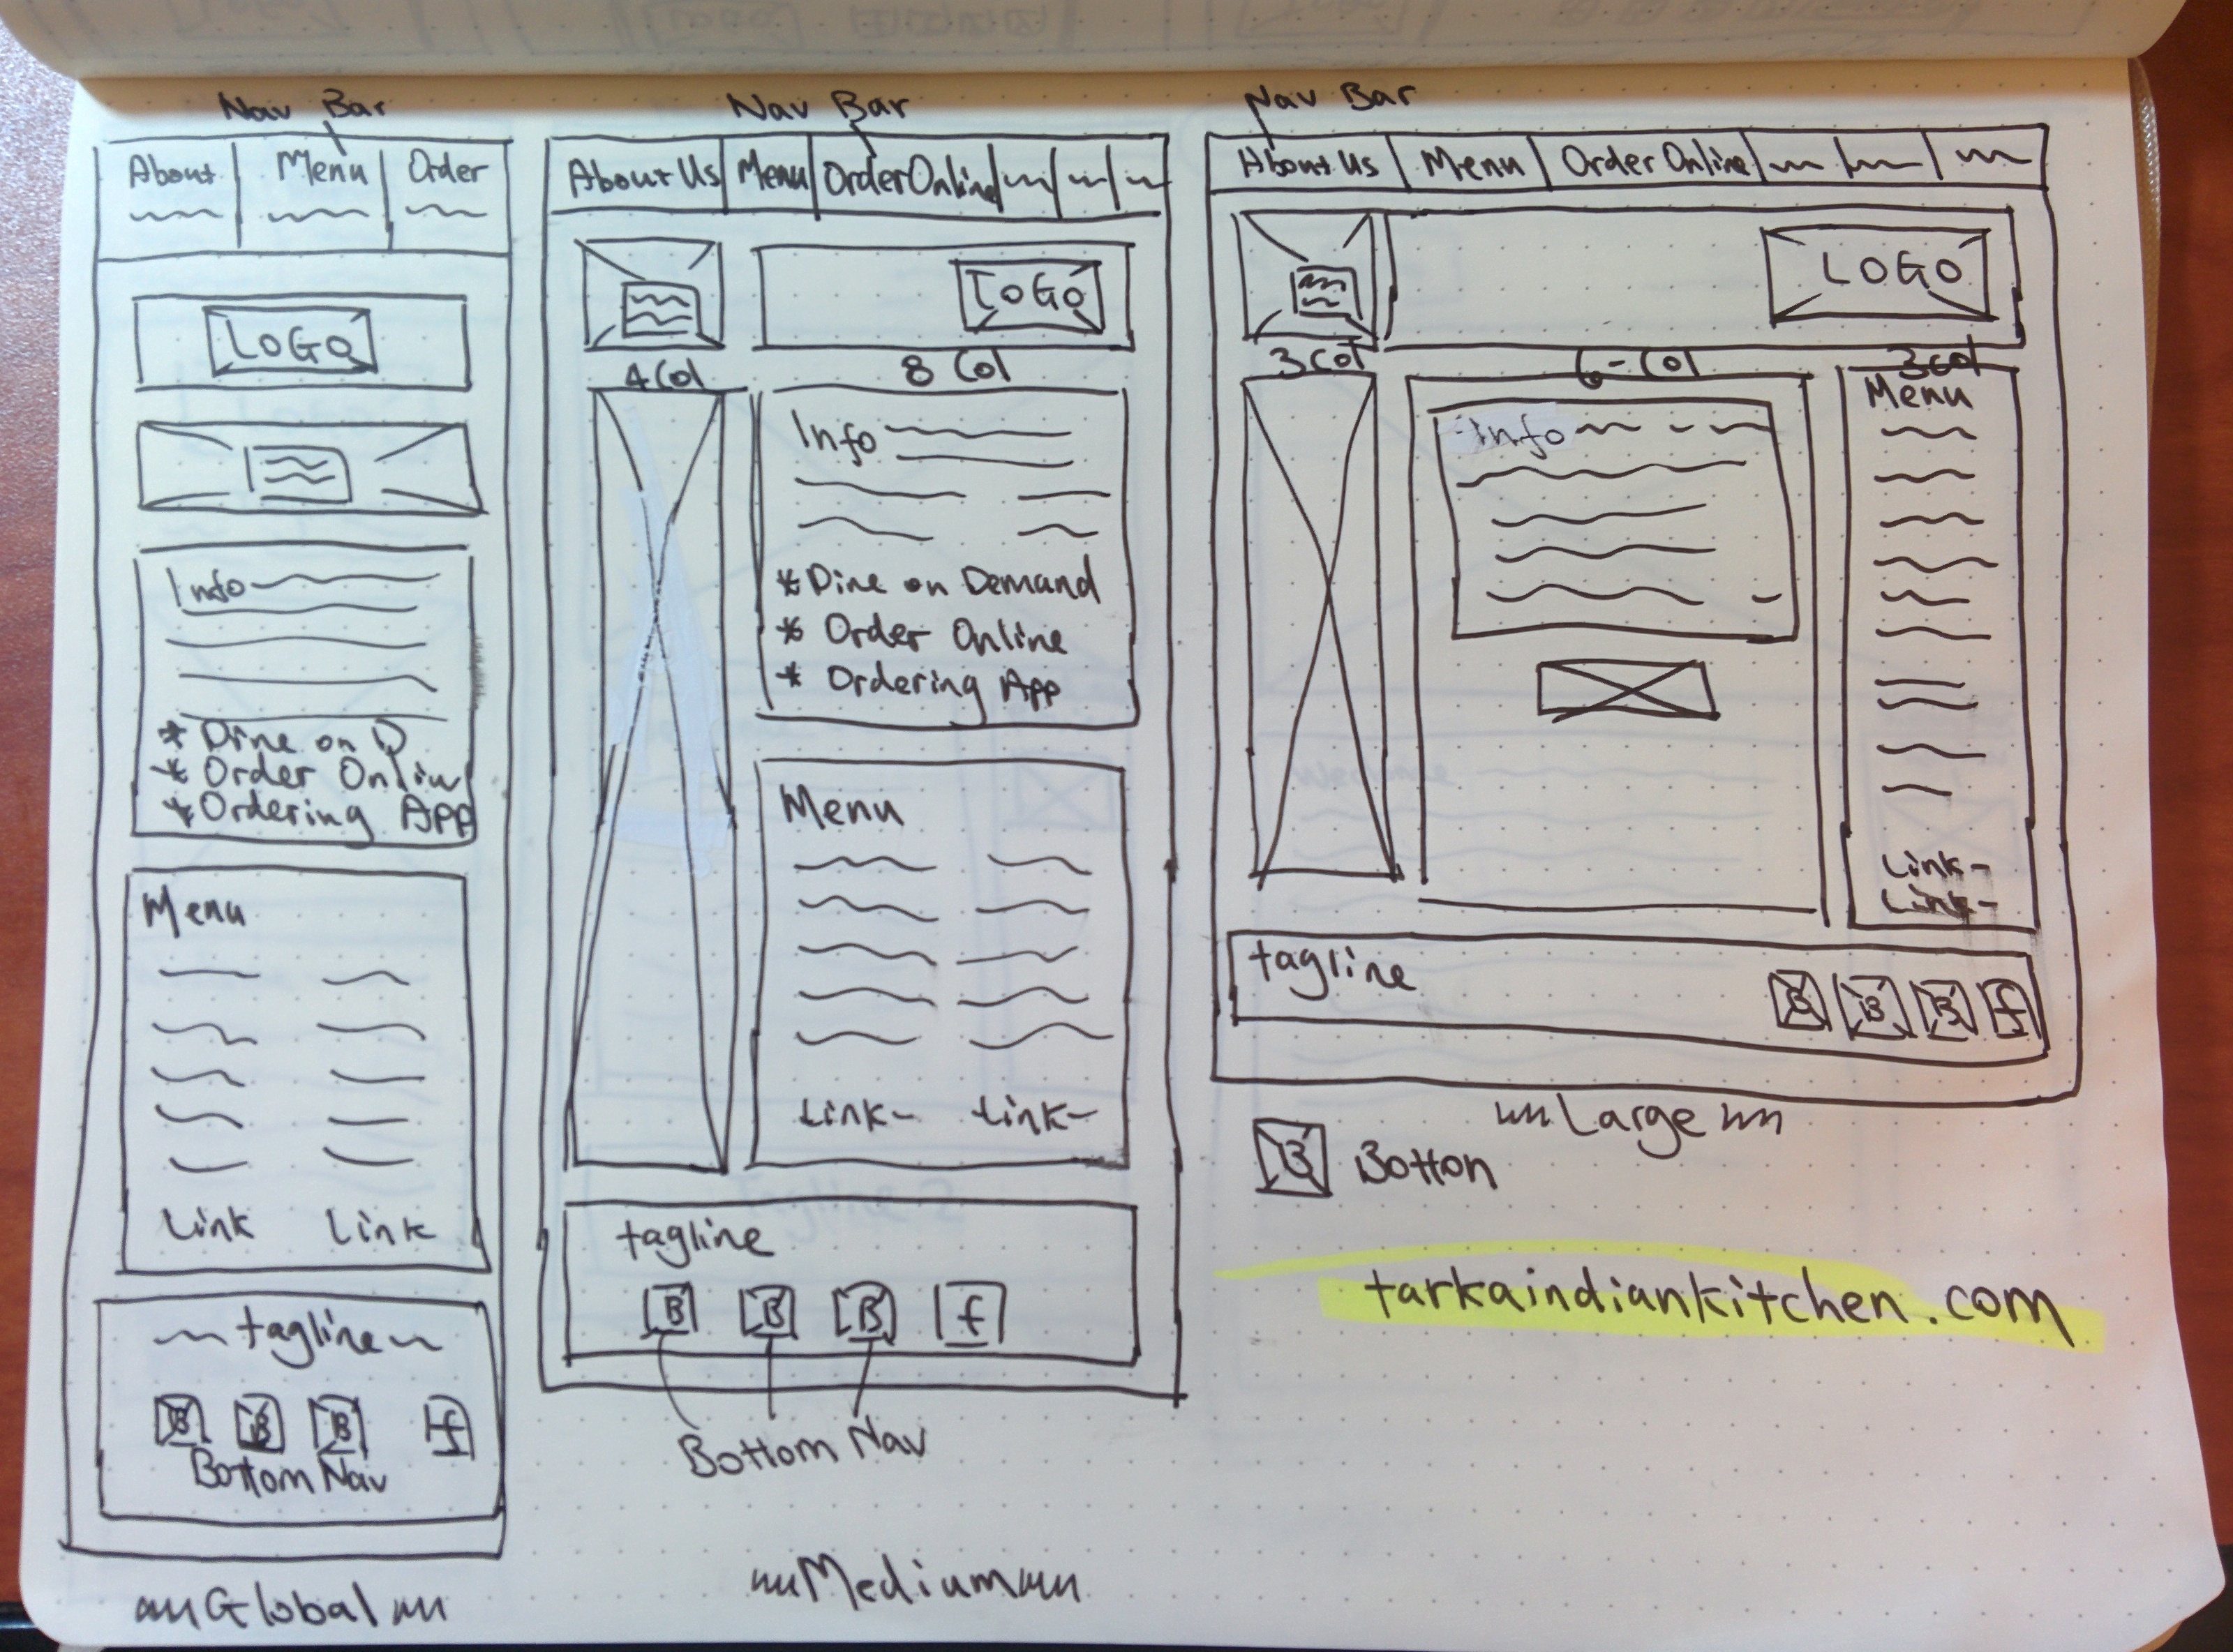 Nav Bar
About
Menu
Order
LOGO
Info
* Dine on D
* Order Onlin
* Ordering App
Menu
Link Link
tagline
B B B f
Bottom Nav
Global
Nav Bar
About Us
Menu
Order Online
LOGO
4 Col
8 Col
Info
* Dine on Demand
* Order Online
* Ordering App
Menu
Link- Link-
tagline
B B B f
Bottom Nav
Medium
Nav Bar
About Us
Menu
Order Online
LOGO
3 Col
6-Col
3 col
Info
Menu
Link-
Link-
tagline
B B B f
Large
B Botton
tarkaindiankitchen.com